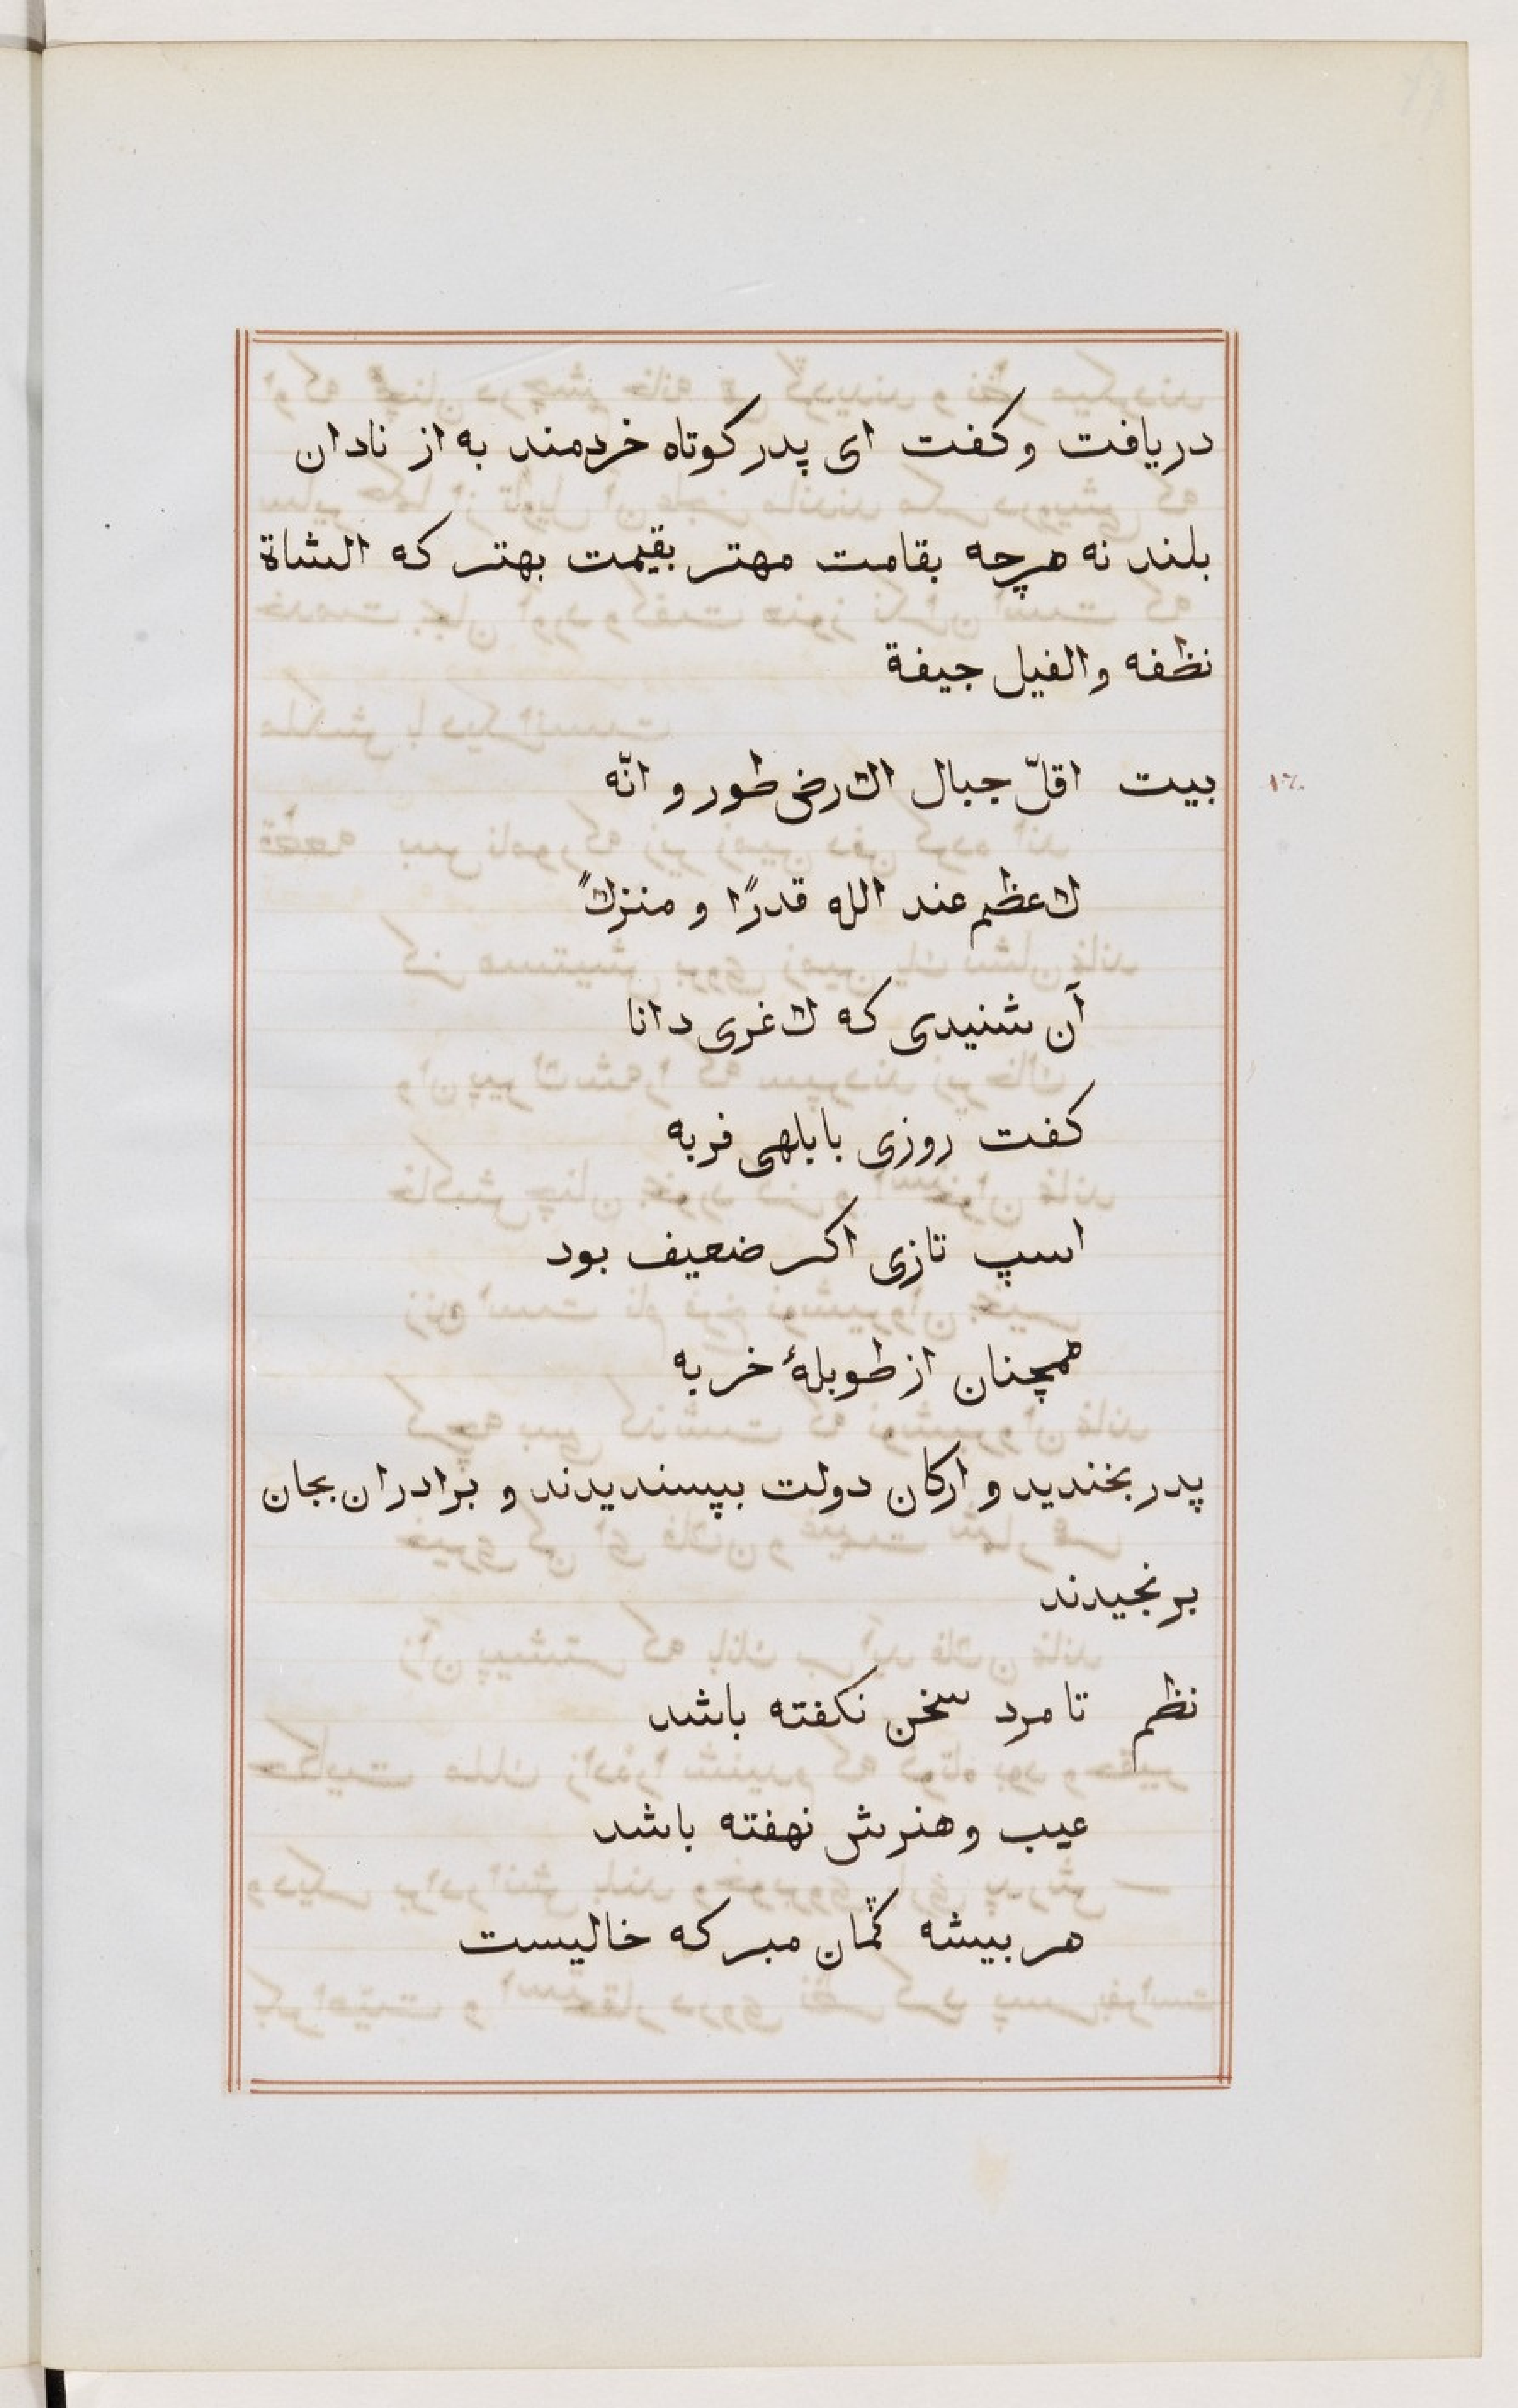 دریافت و کفت ای پدر کوتاه خردمند به از نادان
بلند نه هرچه بقامت مهتر بقیمت بهتر که الشاة
نظفه والفیل جیفة
بیت اقلّ جبال الارض طور و انّه
لاعظم عند الله قدرًا و منزلاً
آن شنیدی که لاغری دانا
کفت روزی بابلهی فربه
اسپ تازی اکر ضعیف بود
همچنان از طویلهٔ خر به
پدر بخندید و ارکان دولت بپسندیدند و برادران بجان
برنجیدند
نظم تا مرد سخن نکفته باشد
عیب و هنرش نهفته باشد
هر بیشه کمان مبر که خالیست